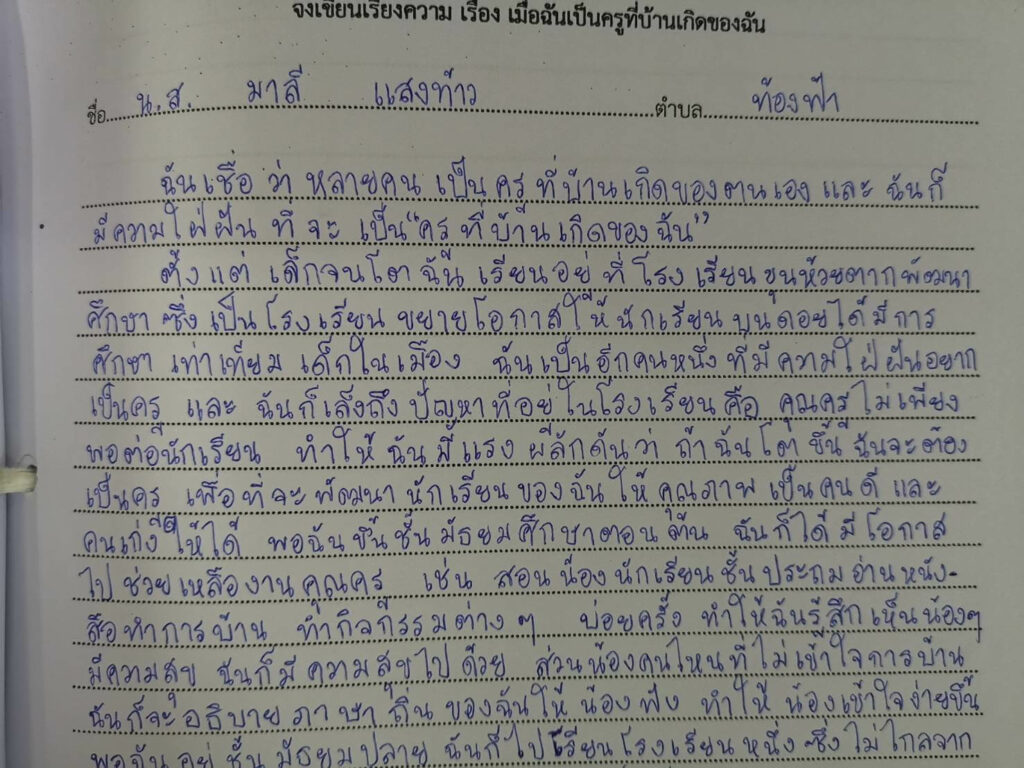 จงเขียนเรียงความ เรื่อง เมื่อฉันเป็นครูที่บ้านเกิดของฉัน
ชื่อ น.ส. มาลี แสงท้าว ตำบล ท้องฟ้า
ฉันเชื่อ ว่า หลายคน เป็นครู ที่บ้านเกิดของตนเอง และ ฉันก็
มีความใฝ่ฝัน ที่ จะ เป็น "ครู ที่บ้านเกิดของฉัน"
ตั้งแต่ เด็กจนโต ฉัน เรียนอยู่ ที่ โรงเรียนขุนห้วยตากพัฒนา
ศึกษา ซึ่ง เป็นโรงเรียน ขยายโอกาสให้นักเรียน บนดอยได้มีการ
ศึกษา เท่าเทียม เด็กในเมือง ฉันเป็นอีกคนหนึ่ง ที่มีความใฝ่ฝันอยาก
เป็นครู และ ฉันก็เล็งถึง ปัญหาที่อยู่ในโรงเรียนคือ คุณครูไม่เพียง
พอต่อนักเรียน ทำให้ ฉันมีแรง ผลักดันว่า ถ้าฉันโต ขึ้นฉันจะต้อง
เป็นครู เพื่อที่จะพัฒนา นักเรียนของฉันให้ คุณภาพ เป็นคนดี และ
คนเก่งให้ได้ พอฉันขึ้นชั้นมัธยมศึกษาตอนต้น ฉันก็ได้มีโอกาส
ไปช่วยเหลืองานคุณครู เช่น สอนน้องนักเรียนชั้นประถมอ่านหนัง-
สือทำการบ้าน ทำกิจกรรมต่างๆ บ่อยครั้ง ทำให้ฉันรู้สึกเห็นน้องๆ
มีความสุข ฉันก็มีความสุขไปด้วย ส่วนน้องคนไหนที่ไม่เข้าใจการบ้าน
ฉันก็จะอธิบายภาษาถิ่นของฉันให้น้องฟัง ทำให้น้องเข้าใจง่ายขึ้น
พอฉันอยู่ชั้นมัธยมปลาย ฉันก็ไปเรียนโรงเรียนหนึ่งซึ่งไม่ไกลจาก